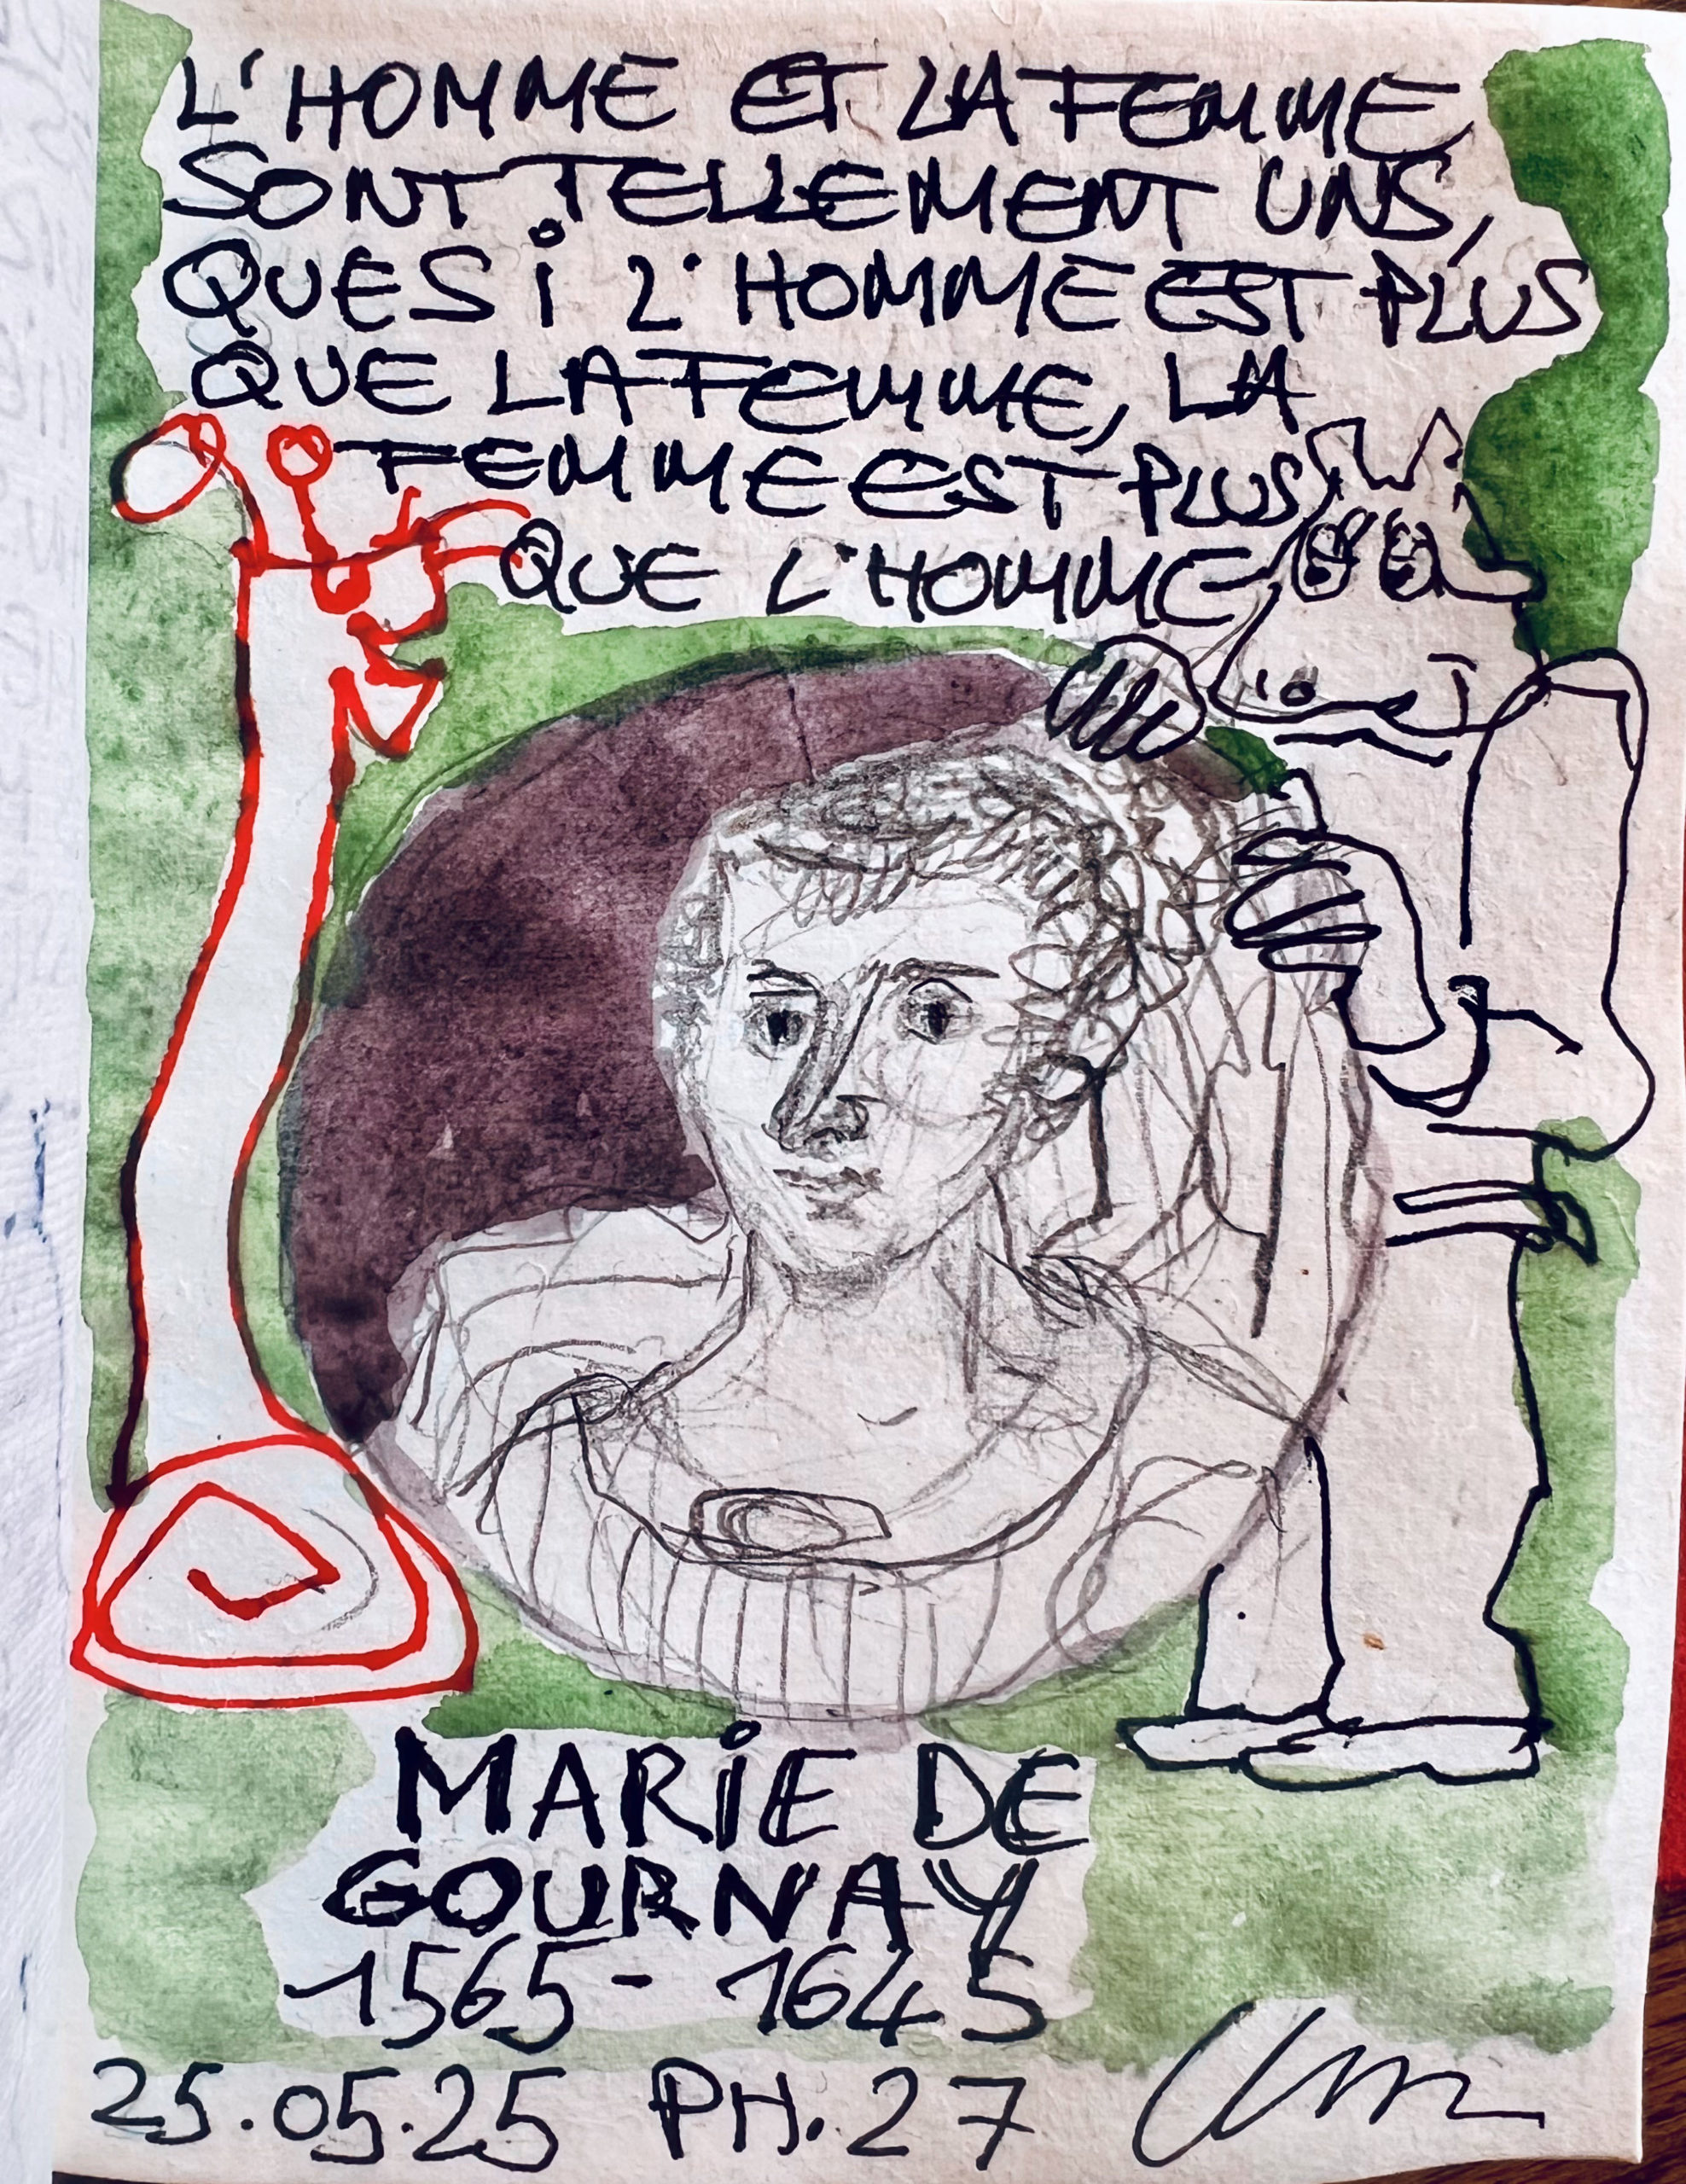 L'HOMME ET LA FEMME
SONT TELLEMENT UNS,
QUE SI L'HOMME EST PLUS
QUE LA FEMME, LA
FEMME EST PLUS
QUE L'HOMME
MARIE DE
GOURNAY
1565 - 1645
25.05.25 PH. 27